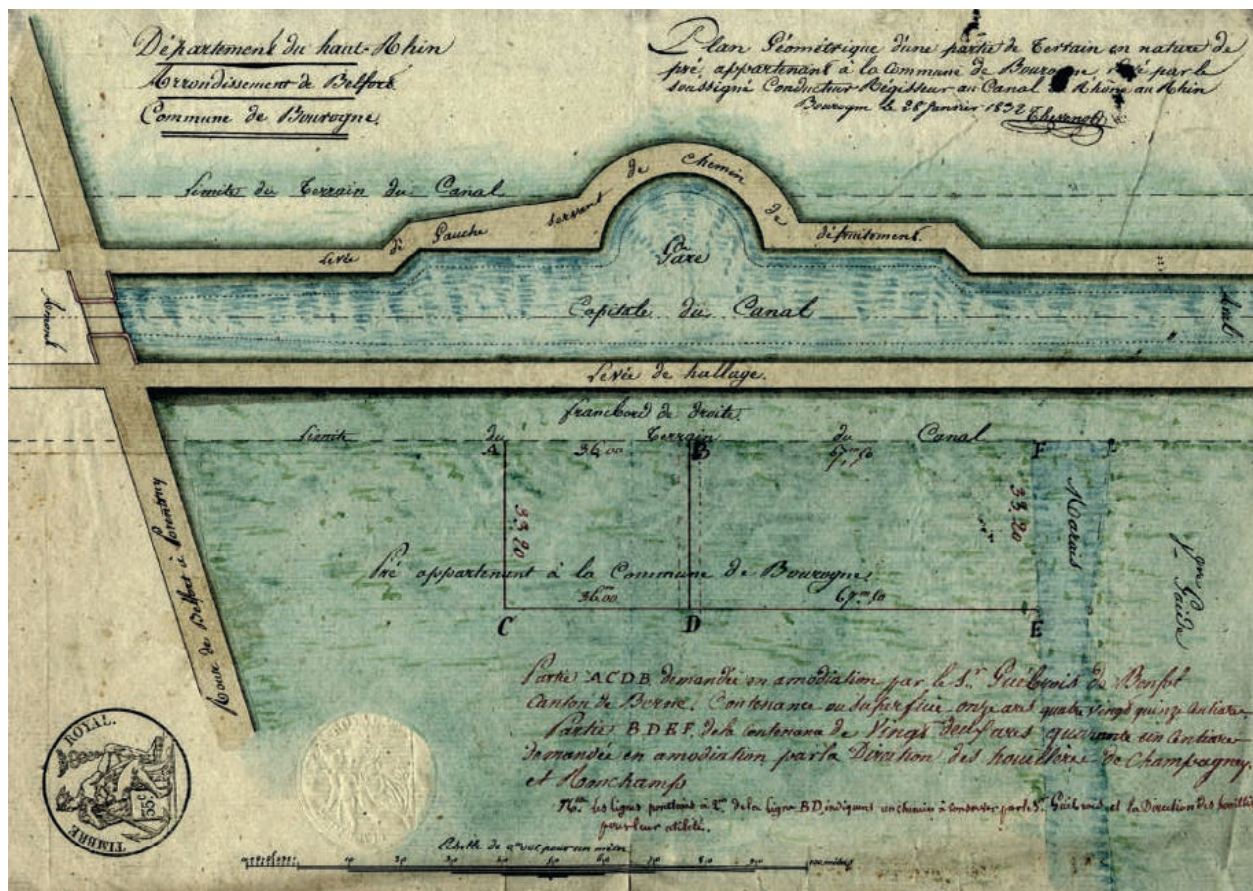 Département du haut-Rhin
Arrondissement de Belfort
Commune de Bourogne.
Plan Géométrique d'une partie de Terrain en nature de
pré appartenant à la Commune de Bourogne, levé par le
soussigné Conducteur Régisseur au Canal du Rhône au Rhin
Bourogne le 28 Janvier 1832
Thevenot
Limite du Terrain du Canal
Levée de Gauche servant de Chemin de
Gare
Amont
Capitale du Canal
Aval
Levée de hallage.
francbord de droite.
Limite du Terrain du Canal
A 36.00 B 67.m50 F
33.20
33.20
Marais
Pré appartenant à la Commune de Bourogne.
36.m00 67.m50
C D E
Route de Belfort à Porentruy
Partie ACDB demandée en amodiation par le Sr.
Canton de Berne. Contenance ou surface onze ares quatre vingt quinze Centiare
Partie BDEF de la Contenance de Vingt deux ares quarante un Centiare
demandée en amodiation par la Direction des houillère de Champagney
et Ronchamp
les lignes de la ligne BD, indiquent un chemin à conserver par le Sr. et la Direction des
pour leur utilité.
Echelle de pour un mètre
10 20 30 40 50 60 70 80 90 100 mètres
TIMBRE ROYAL.